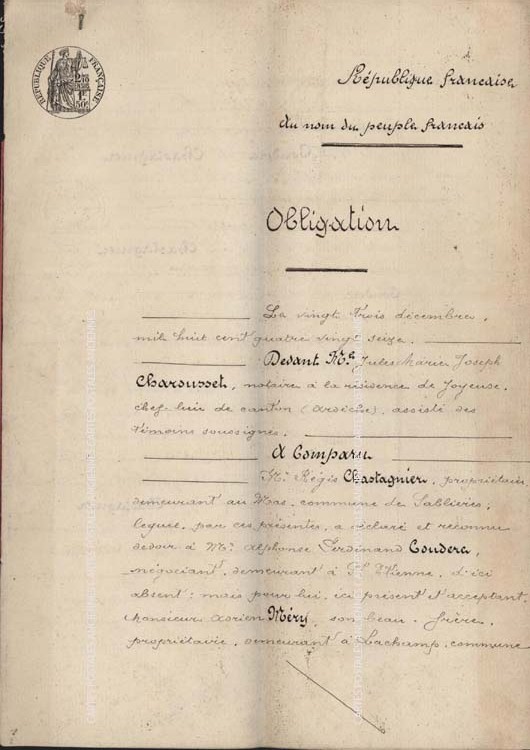 RÉPUBLIQUE FRANÇAISE
2/10 EN SUS
1F 50c
République française
Au nom du peuple français
Obligation
Le vingt trois décembre,
mil huit cent quatre vingt seize.
Devant Me Jules Marie Joseph
Charousset, notaire à la résidence de Joyeuse,
chef-lieu de canton (Ardèche), assisté des
témoins soussignés.
A Comparu
Mr. Régis Chastagnier, propriétaire,
demeurant au Mas, commune de Sablières,
lequel, par ces présentes, a déclaré et reconnu
devoir à Mr. Alphonse Ferdinand Couderc,
négociant, demeurant à St Etienne, d'ici
absent; mais pour lui, ici présent et acceptant,
Monsieur Adrien Méry, son beau-frère,
propriétaire, demeurant à Lachamp, commune